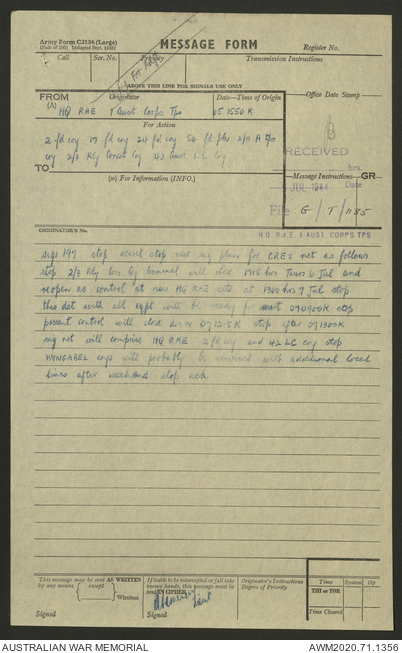 Army Form C2136 (Large)
(Pads of 100) (Adapted Sept. 1942)
MESSAGE FORM
Register No.
Call
Ser. No.
Priority
Transmission Instructions
ABOVE THIS LINE FOR SIGNALS USE ONLY
FROM
(A)
Originator
Date—Time of Origin
Office Date Stamp
HQ RAE 1 Aust Corps Tps
051550K
For Action
2 fd coy 17 fd coy 24 fd coy 54 fd pk 2/11 A Tps
coy 2/3 Rly Const Coy 42 Aust L C Coy
TO
(W) For Information (INFO.)
RECEIVED
hrs.
Message Instructions GR
JUL 1944 Date
File G/T/1135
H.Q. R.A.E. 1 AUST. CORPS TPS
ORIGINATOR'S No.
sigs 197 stop secret stop new sig plan for CREs net as follows
stop 2/3 Rly terminal will close 1715 hrs Thurs 6 Jul and
reopen as control at new HQ RAE site at 1300 hrs 7 Jul stop
this det with all eqpt will be ready for 070900K stop
present control will close down 071215K stop after 071300K
sig net will comprise HQ RAE 2 fd coy and 42 LC coy stop
WONGABEL coys will probably be serviced with additional local
lines after weekend stop
This message may be sent AS WRITTEN
by any means except
Wireless
Signed
If liable to be intercepted or fall into
enemy hands, this message must be
sent IN CIPHER
Lieut
Signed
Originator's Instructions
Degree of Priority
Time
System
Op.
THI or TOR
Time Cleared
AUSTRALIAN WAR MEMORIAL
AWM2020.71.1356